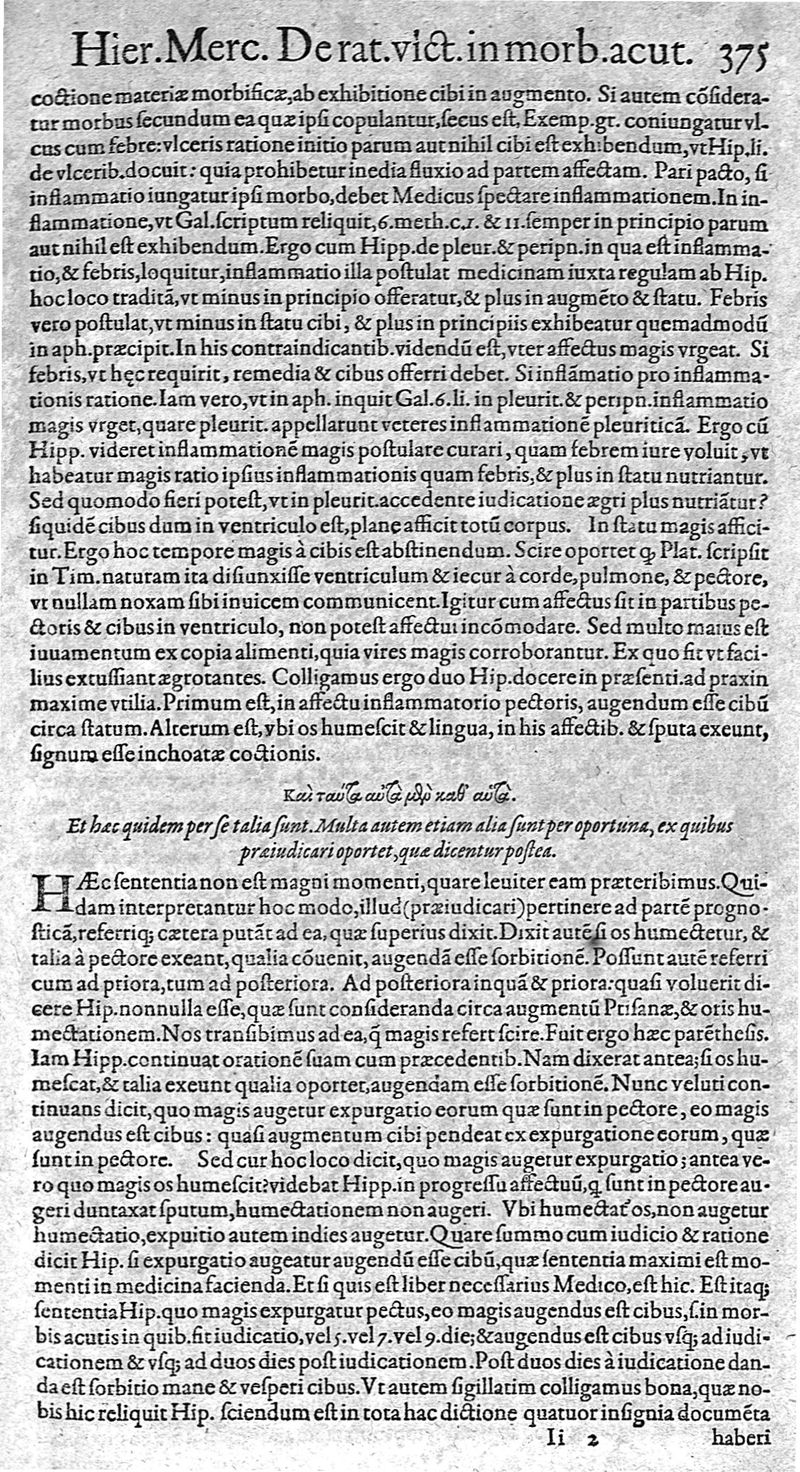 Hier. Merc. De rat. vict. in morb. acut. 375
coctione materiæ morbificæ, ab exhibitione cibi in augmento. Si autem cōſidera-
tur morbus ſecundum ea quæ ipſi copulantur, ſecus eſt, Exemp. gr. coniungatur vl-
cus cum febre: vlceris ratione initio parum aut nihil cibi eſt exhibendum, vt Hip. li.
de vlcerib. docuit: quia prohibetur inedia fluxio ad partem affectam. Pari pacto, ſi
inflammatio iungatur ipſi morbo, debet Medicus ſpectare inflammationem. In in-
flammatione, vt Gal. ſcriptum reliquit, 6. meth. c. 1. & 11. ſemper in principio parum
aut nihil eſt exhibendum. Ergo cum Hipp. de pleur. & peripn. in qua eſt inflamma-
tio, & febris, loquitur, inflammatio illa poſtulat medicinam iuxta regulam ab Hip.
hoc loco traditā, vt minus in principio offeratur, & plus in augmēto & ſtatu. Febris
vero poſtulat, vt minus in ſtatu cibi, & plus in principiis exhibeatur quemadmodū
in aph. præcipit. In his contraindicantib. videndū eſt, vter affectus magis vrgeat. Si
febris, vt hęc requirit, remedia & cibus offerri debet. Si inflāmatio pro inflamma-
tionis ratione. Iam vero, vt in aph. inquit Gal. 6. li. in pleurit. & peripn. inflammatio
magis vrget, quare pleurit. appellarunt veteres inflammationē pleuriticā. Ergo cū
Hipp. videret inflammationē magis poſtulare curari, quam febrem iure voluit, vt
habeatur magis ratio ipſius inflammationis quam febris, & plus in ſtatu nutriantur.
Sed quomodo fieri poteſt, vt in pleurit. accedente iudicatione ægri plus nutriātur?
ſiquidē cibus dum in ventriculo eſt, planę afficit totū corpus. In ſtatu magis affici-
tur. Ergo hoc tempore magis à cibis eſt abſtinendum. Scire oportet ꝙ Plat. ſcripſit
in Tim. naturam ita diſiunxiſſe ventriculum & iecur à corde, pulmone, & pectore,
vt nullam noxam ſibi inuicem communicent. Igitur cum affectus ſit in partibus pe-
ctoris & cibus in ventriculo, non poteſt affectui incōmodare. Sed multo maius eſt
iuuamentum ex copia alimenti, quia vires magis corroborantur. Ex quo fit vt faci-
lius extuſſiant ægrotantes. Colligamus ergo duo Hip. docere in præſenti. ad praxin
maxime vtilia. Primum eſt, in affectu inflammatorio pectoris, augendum eſſe cibū
circa ſtatum. Alterum eſt, vbi os humeſcit & lingua, in his affectib. & ſputa exeunt,
ſignum eſſe inchoatæ coctionis.
Καὶ ταῦτα αὐτὰ μὲν καθ' αὑτά.
Et hæc quidem per ſe talia ſunt. Multa autem etiam alia ſunt peroportuna, ex quibus
præiudicari oportet, quæ dicentur poſtea.
HÆc ſententia non eſt magni momenti, quare leuiter eam præteribimus. Qui-
dam interpretantur hoc modo, illud (præiudicari) pertinere ad partē progno-
ſticā, referriq; cætera putāt ad ea, quæ ſuperius dixit. Dixit autē ſi os humectetur, &
talia à pectore exeant, qualia cōuenit, augendā eſſe ſorbitionē. Poſſunt autē referri
cum ad priora, tum ad poſteriora. Ad poſteriora inquā & priora: quaſi voluerit di-
cere Hip. nonnulla eſſe, quæ ſunt conſideranda circa augmentū Ptiſanæ, & oris hu-
mectationem. Nos tranſibimus ad ea, q̄ magis refert ſcire. Fuit ergo hæc parētheſis.
Iam Hipp. continuat orationē ſuam cum præcedentib. Nam dixerat antea; ſi os hu-
meſcat, & talia exeunt qualia oportet, augendam eſſe ſorbitionē. Nunc veluti con-
tinuans dicit, quo magis augetur expurgatio eorum quæ ſunt in pectore, eo magis
augendus eſt cibus: quaſi augmentum cibi pendeat ex expurgatione eorum, quæ
ſunt in pectore. Sed cur hoc loco dicit, quo magis augetur expurgatio; antea ve-
ro quo magis os humeſcit? videbat Hipp. in progreſſu affectuū, ꝙ ſunt in pectore au-
geri duntaxat ſputum, humectationem non augeri. Vbi humectat os, non augetur
humectatio, expuitio autem indies augetur. Quare ſummo cum iudicio & ratione
dicit Hip. ſi expurgatio augeatur augendū eſſe cibū, quæ ſententia maximi eſt mo-
menti in medicina facienda. Et ſi quis eſt liber neceſſarius Medico, eſt hic. Eſt itaq;
ſententia Hip. quo magis expurgatur pectus, eo magis augendus eſt cibus, ſ. in mor-
bis acutis in quib. fit iudicatio, vel 5. vel 7. vel 9. die; & augendus eſt cibus vſq; ad iudi-
cationem & vſq; ad duos dies poſt iudicationem. Poſt duos dies à iudicatione dan-
da eſt ſorbitio mane & veſperi cibus. Vt autem ſigillatim colligamus bona, quæ no-
bis hic reliquit Hip. ſciendum eſt in tota hac dictione quatuor inſignia documēta
Ii 2 haberi